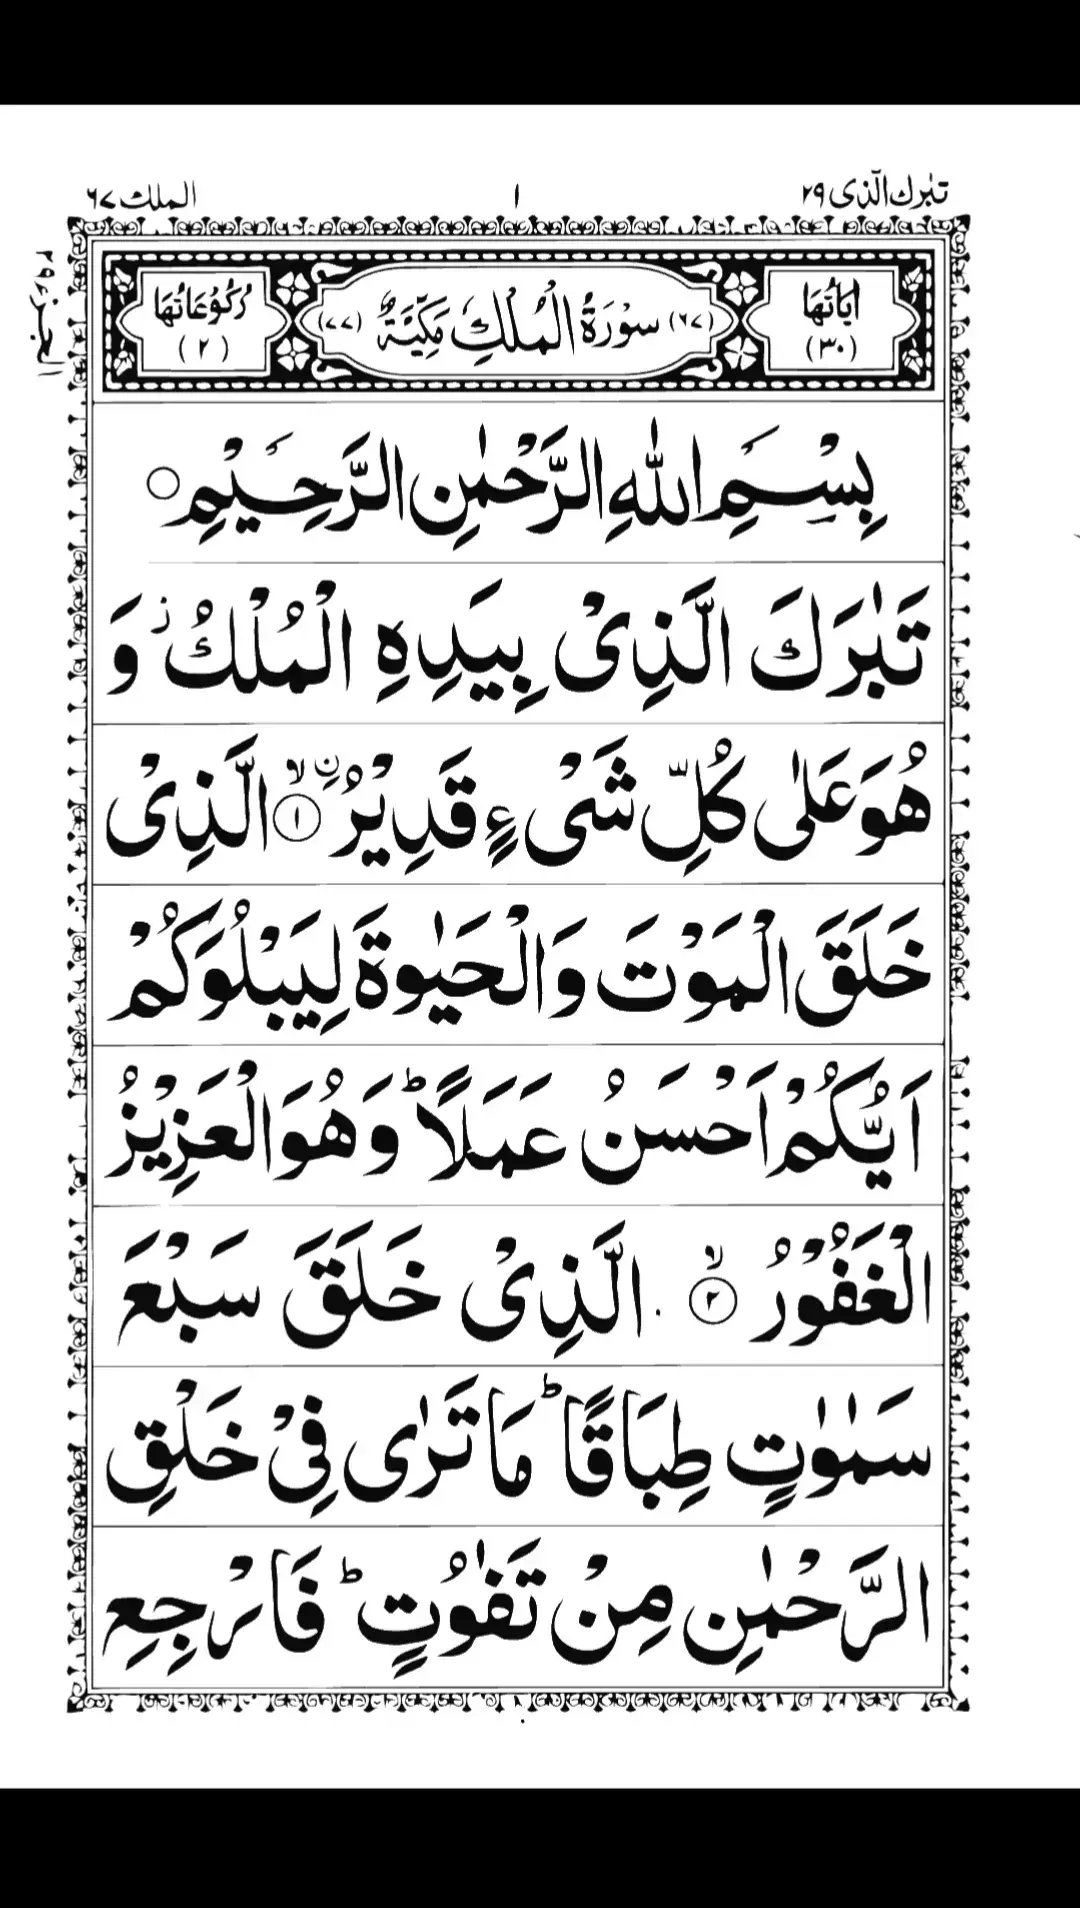 تبٰرك الّذى ٢٩
١
الملك ٦٧
اٰيَاتُهَا (٣٠)
(٦٧) سُوْرَةُ الْمُلْكِ مَكِّيَّةٌ (٧٧)
رُكُوْعَاتُهَا (٢)
الجزء ٢٩
بِسْمِ اللّٰهِ الرَّحْمٰنِ الرَّحِيْمِ ○
تَبٰرَكَ الَّذِىْ بِيَدِهِ الْمُلْكُ ؗ وَ
هُوَ عَلٰى كُلِّ شَىْءٍ قَدِيْرُ ۨ ۙ ① الَّذِىْ
خَلَقَ الْمَوْتَ وَالْحَيٰوةَ لِيَبْلُوَكُمْ
اَيُّكُمْ اَحْسَنُ عَمَلًا ؕ وَهُوَ الْعَزِيْزُ
الْغَفُوْرُ ۙ ② الَّذِىْ خَلَقَ سَبْعَ
سَمٰوٰتٍ طِبَاقًا ؕ مَا تَرٰى فِىْ خَلْقِ
الرَّحْمٰنِ مِنْ تَفٰوُتٍ ؕ فَارْجِعِ